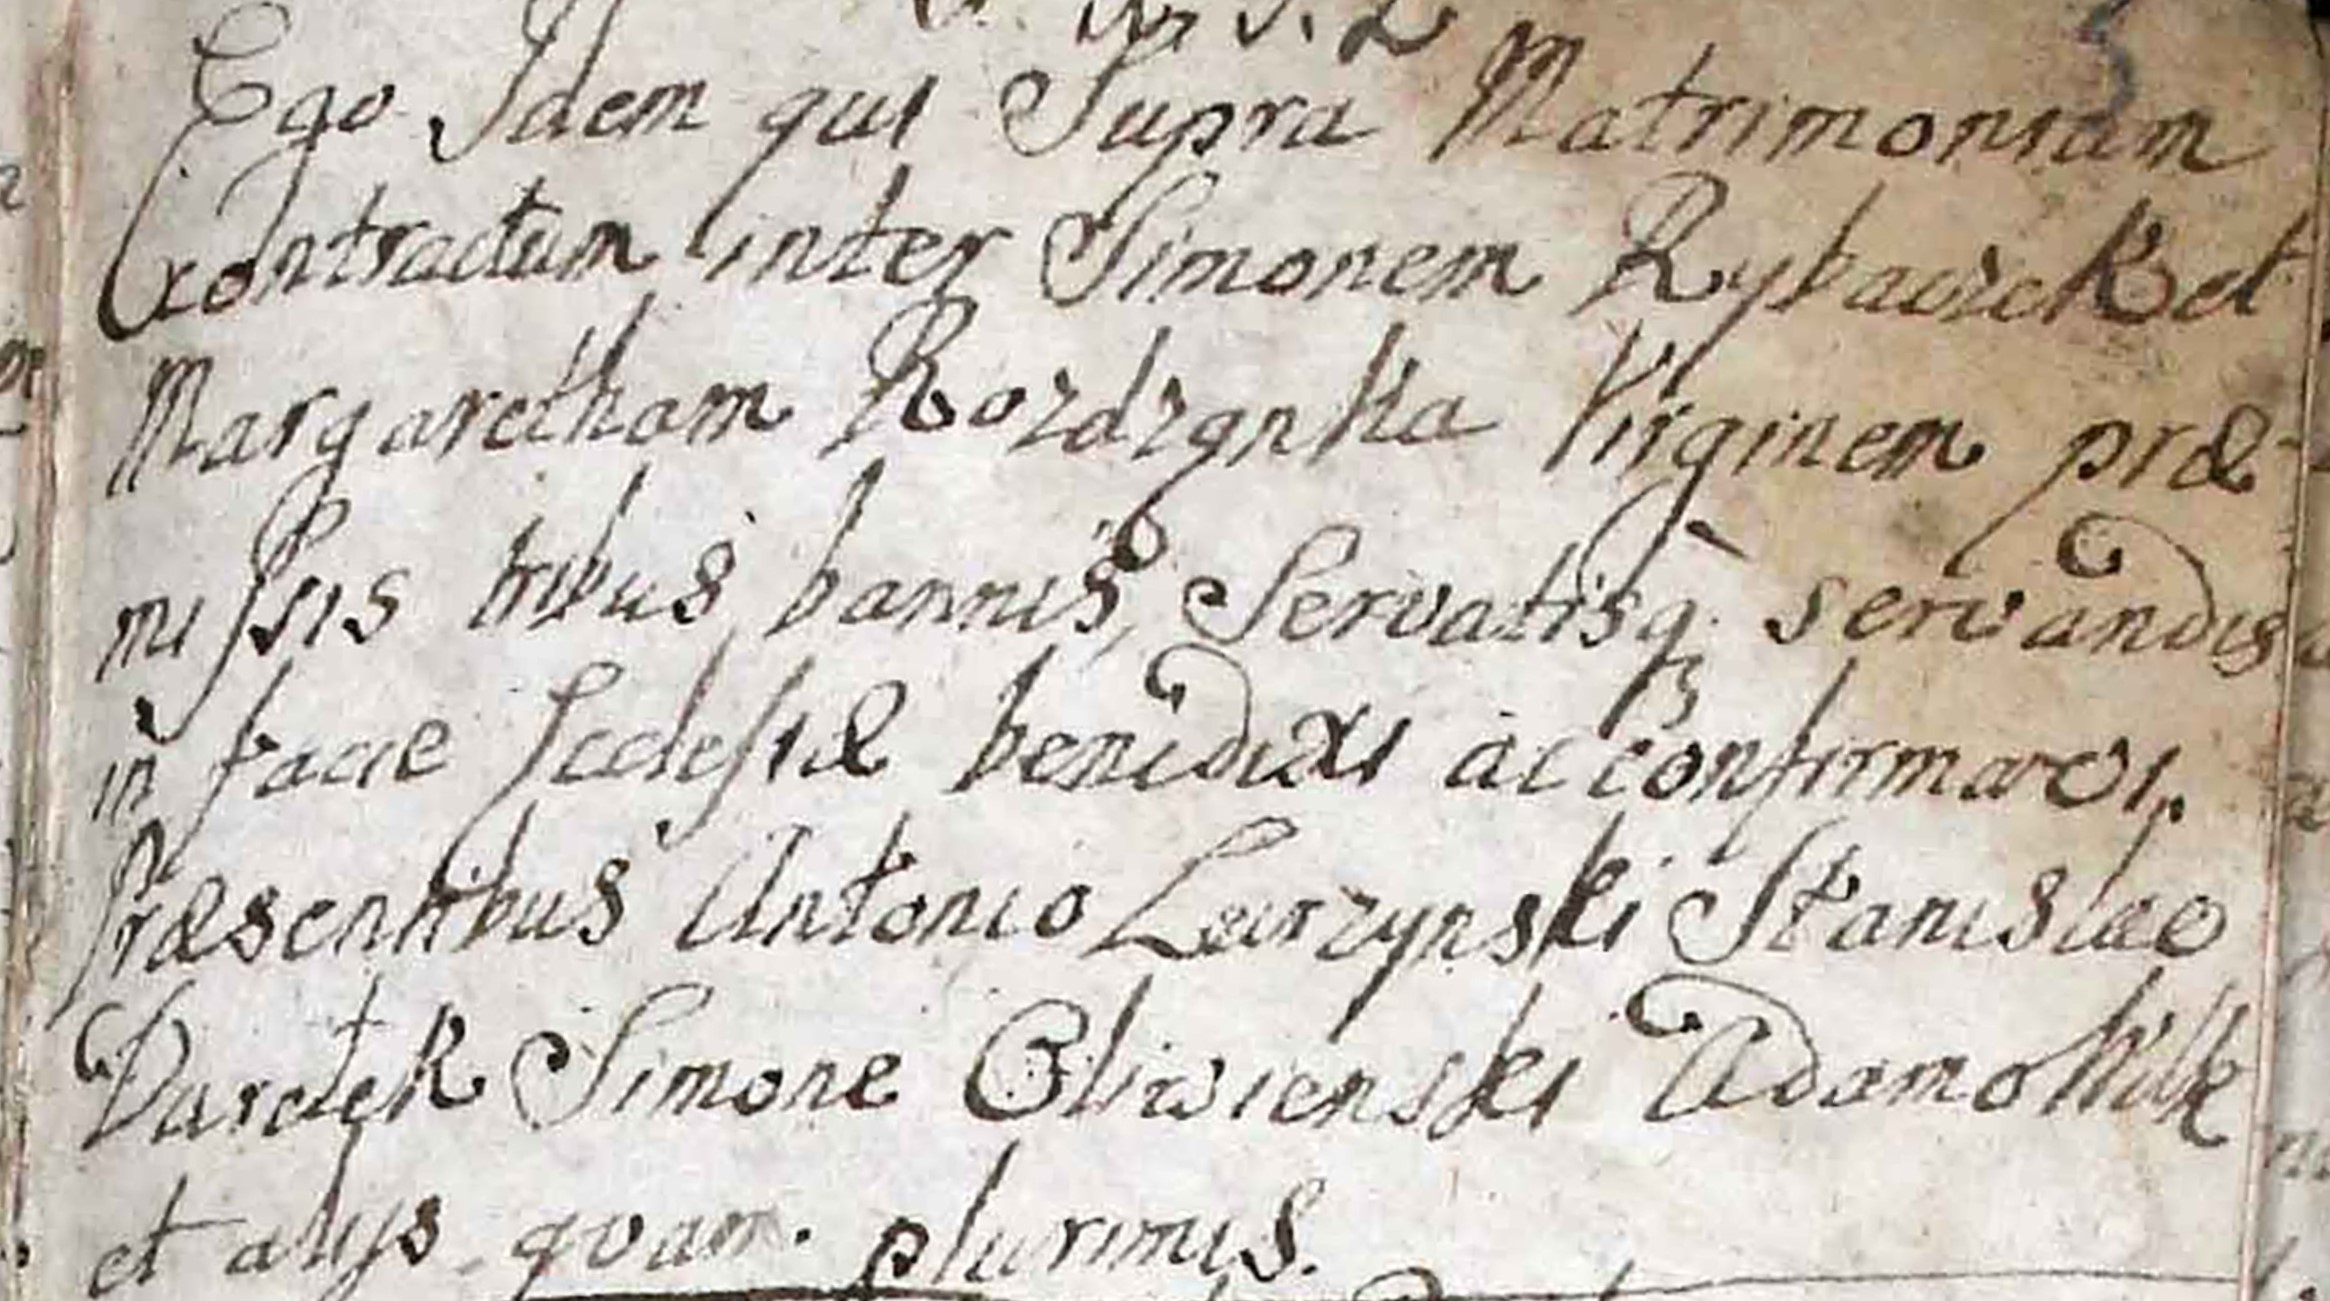 Ego Idem qui Supra Matrimonium
Contractum inter Simonem Rybaczek et
Margaretham Rozdzynska Virginem præ-
missis tribus bannis, Servatisq servandis
in facie Ecclesiæ benedixi ac confirmavi,
Præsentibus Antonio Stanislao
Simone Gliwienski Adamo Wilk
et alijs quam plurimis.